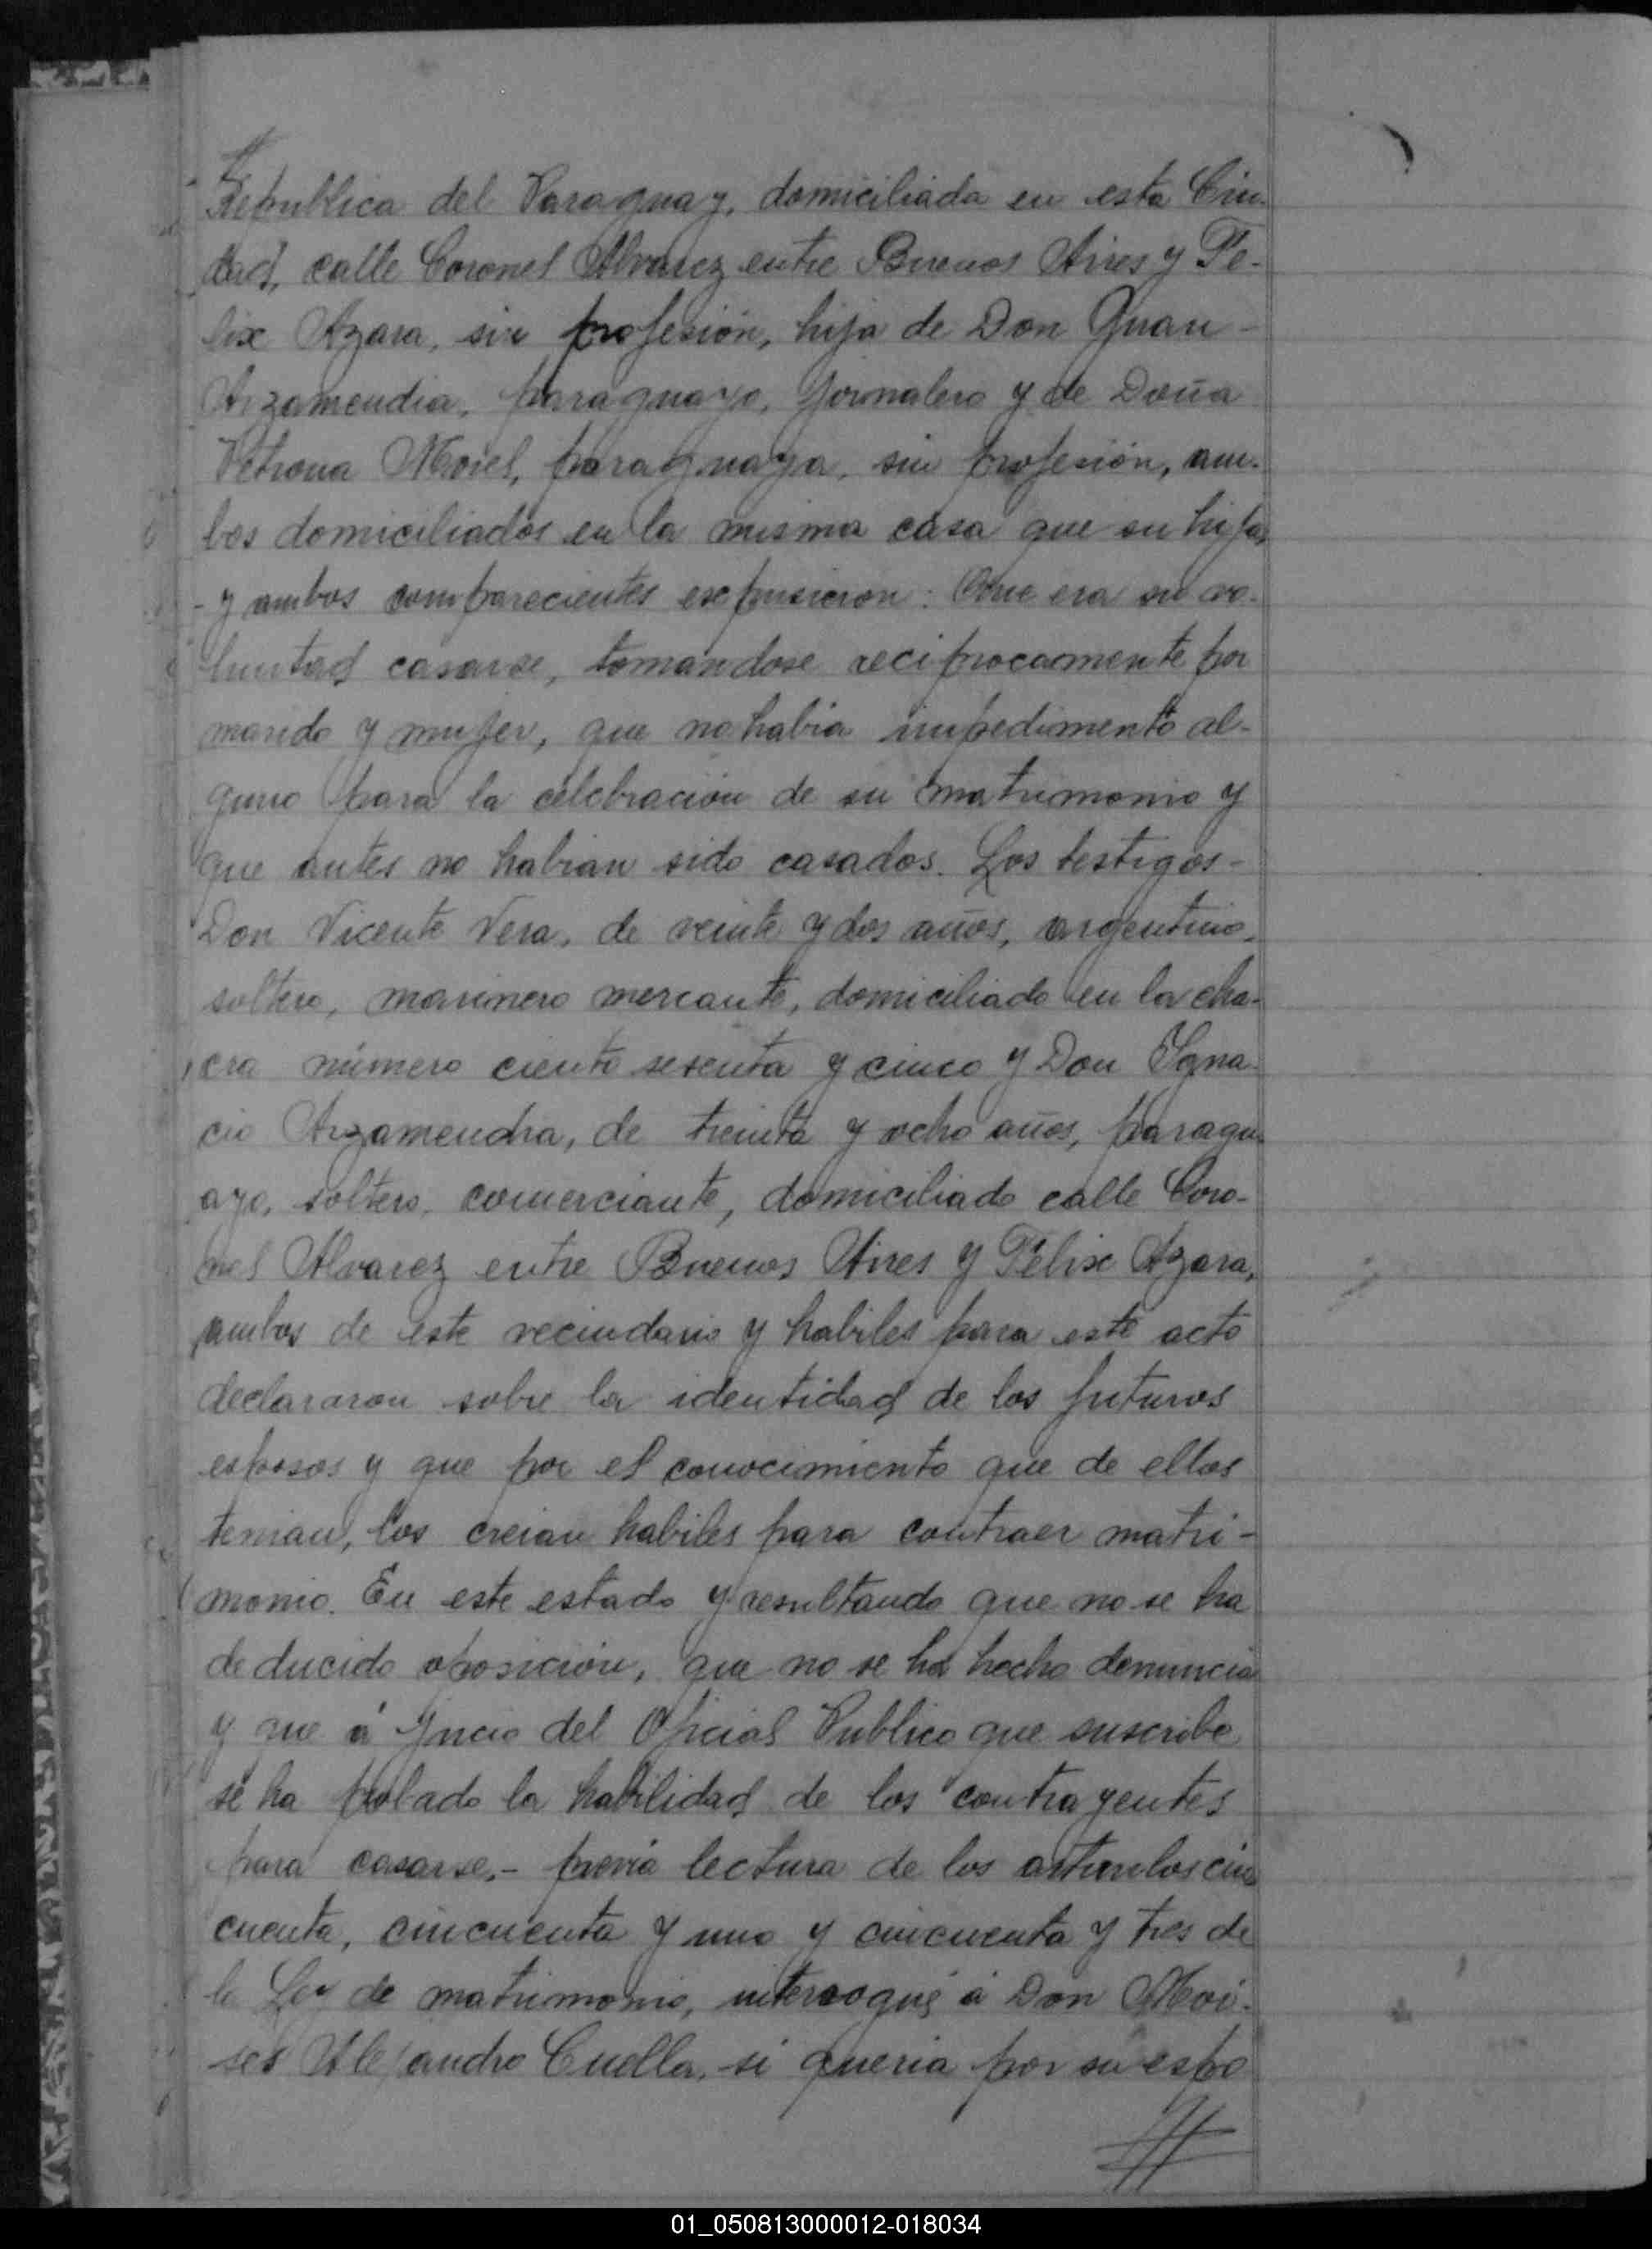 Republica del Paraguay, domiciliada en esta Ciu-
dad, calle Coronel Alvarez entre Buenos Aires y Fe-
lix Azara, sin profesión, hija de Don Juan -
Arzamendia, paraguayo, jornalero y de Doña
Petrona Morel, paraguaya, sin profesión, am-
bos domiciliados en la misma casa que su hija,
- y ambos comparecientes expusieron: Que era su vo-
luntad casarse, tomandose reciprocamente por
marido y mujer, que no habia impedimento al-
guno para la celebración de su matrimonio y
que antes no habian sido casados. Los testigos -
Don Vicente Vera, de veinte y dos años, argentino,
soltero, marinero mercante, domiciliado en la cha-
cra número ciento sesenta y cinco y Don Ygna-
cio Arzamendia, de treinta y ocho años, paragu-
ayo, soltero, comerciante, domiciliado calle Coro-
nel Alvarez entre Buenos Aires y Felix Azara,
ambos de este vecindario y habiles para este acto
declararon sobre la identidad de los futuros
esposos y que por el conocimiento que de ellos
tenian, los creian habiles para contraer matri-
monio. En este estado y resultando que no se ha
deducido oposición, que no se ha hecho denuncia
y que á juicio del Oficial Publico que suscribe
se ha probado la habilidad de los contrayentes
para casarse, - previa lectura de los articulos cin
cuenta, cincuenta y uno y cincuenta y tres de
la Ley de matrimonio, interrogué á Don Moi-
ses Alejandro Cuella, si queria por su espo
01_050813000012-018034